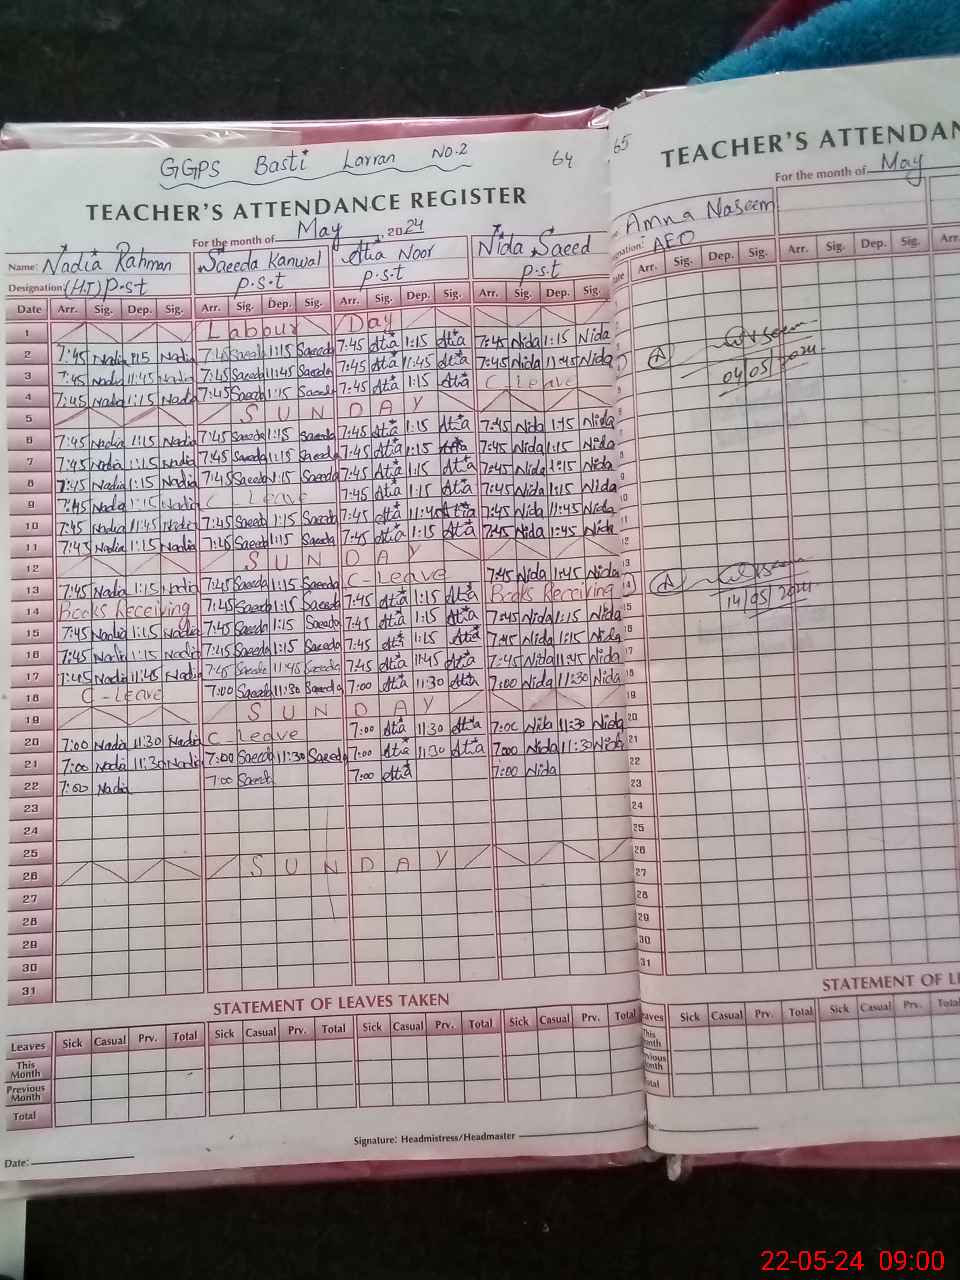 GGPS Basti Larran No.2 64
TEACHER'S ATTENDANCE REGISTER
For the month of May, 2024
Name: Nadia Rahman Saeeda Kanwal Atia Noor Nida Saeed
Designation: (H.T) P.s.t P.s.t P.s.t P.s.t
Date Arr. Sig. Dep. Sig. Arr. Sig. Dep. Sig. Arr. Sig. Dep. Sig. Arr. Sig. Dep. Sig.
1 Labour Day
2 7:45 Nadia 1:15 Nadia 7:45 Saeeda 1:15 Saeeda 7:45 Atia 1:15 Atia 7:45 Nida 1:15 Nida
3 7:45 Nadia 11:45 Nadia 7:45 Saeeda 11:45 Saeeda 7:45 Atia 11:45 Atia 7:45 Nida 11:45 Nida
4 7:45 Nadia 1:15 Nadia 7:45 Saeeda 1:15 Saeeda 7:45 Atia 1:15 Atia C-Leave
5 SUNDAY
6 7:45 Nadia 1:15 Nadia 7:45 Saeeda 1:15 Saeeda 7:45 Atia 1:15 Atia 7:45 Nida 1:15 Nida
7 7:45 Nadia 1:15 Nadia 7:45 Saeeda 1:15 Saeeda 7:45 Atia 1:15 Atia 7:45 Nida 1:15 Nida
8 7:45 Nadia 1:15 Nadia 7:45 Saeeda 1:15 Saeeda 7:45 Atia 1:15 Atia 7:45 Nida 1:15 Nida
9 7:45 Nadia 1:15 Nadia C Leave 7:45 Atia 1:15 Atia 7:45 Nida 1:15 Nida
10 7:45 Nadia 11:45 Nadia 7:45 Saeeda 1:15 Saeeda 7:45 Atia 11:45 Atia 7:45 Nida 11:45 Nida
11 7:45 Nadia 1:15 Nadia 7:45 Saeeda 1:15 Saeeda 7:45 Atia 1:15 Atia 7:45 Nida 1:45 Nida
12 SUNDAY
13 7:45 Nadia 1:15 Nadia 7:45 Saeeda 1:15 Saeeda C-Leave 7:45 Nida 1:45 Nida
14 Books Receiving 7:45 Saeeda 1:15 Saeeda 7:45 Atia 1:15 Atia Books Receiving
15 7:45 Nadia 1:15 Nadia 7:45 Saeeda 1:15 Saeeda 7:45 Atia 1:15 Atia 7:45 Nida 1:15 Nida
16 7:45 Nadia 1:15 Nadia 7:45 Saeeda 1:15 Saeeda 7:45 Atia 1:15 Atia 7:45 Nida 1:15 Nida
17 7:45 Nadia 11:45 Nadia 7:45 Saeeda 11:45 Saeeda 7:45 Atia 11:45 Atia 7:45 Nida 11:45 Nida
18 C-Leave 7:00 Saeeda 11:30 Saeeda 7:00 Atia 11:30 Atia 7:00 Nida 11:30 Nida
19 SUNDAY
20 7:00 Nadia 11:30 Nadia C-Leave 7:00 Atia 11:30 Atia 7:00 Nida 11:30 Nida
21 7:00 Nadia 11:30 Nadia 7:00 Saeeda 11:30 Saeeda 7:00 Atia 11:30 Atia 7:00 Nida 11:30 Nida
22 7:00 Nadia 7:00 Saeeda 7:00 Atia 7:00 Nida
23
24
25
26 SUNDAY
27
28
29
30
31
STATEMENT OF LEAVES TAKEN
Leaves Sick Casual Prv. Total Sick Casual Prv. Total Sick Casual Prv. Total Sick Casual Prv. Total
This Month
Previous Month
Total
Signature: Headmistress/Headmaster
Date:
65
TEACHER'S ATTENDAN
For the month of May
Amna Naseem
AEO
Arr. Sig. Dep. Sig. Arr. Sig. Dep. Sig. Arr.
04/05/2024
14/05/2024
15
16
17
18
19
20
21
22
23
24
25
26
27
28
29
30
31
STATEMENT OF L
Sick Casual Prv. Total Sick Casual Prv. Total
22-05-24 09:00